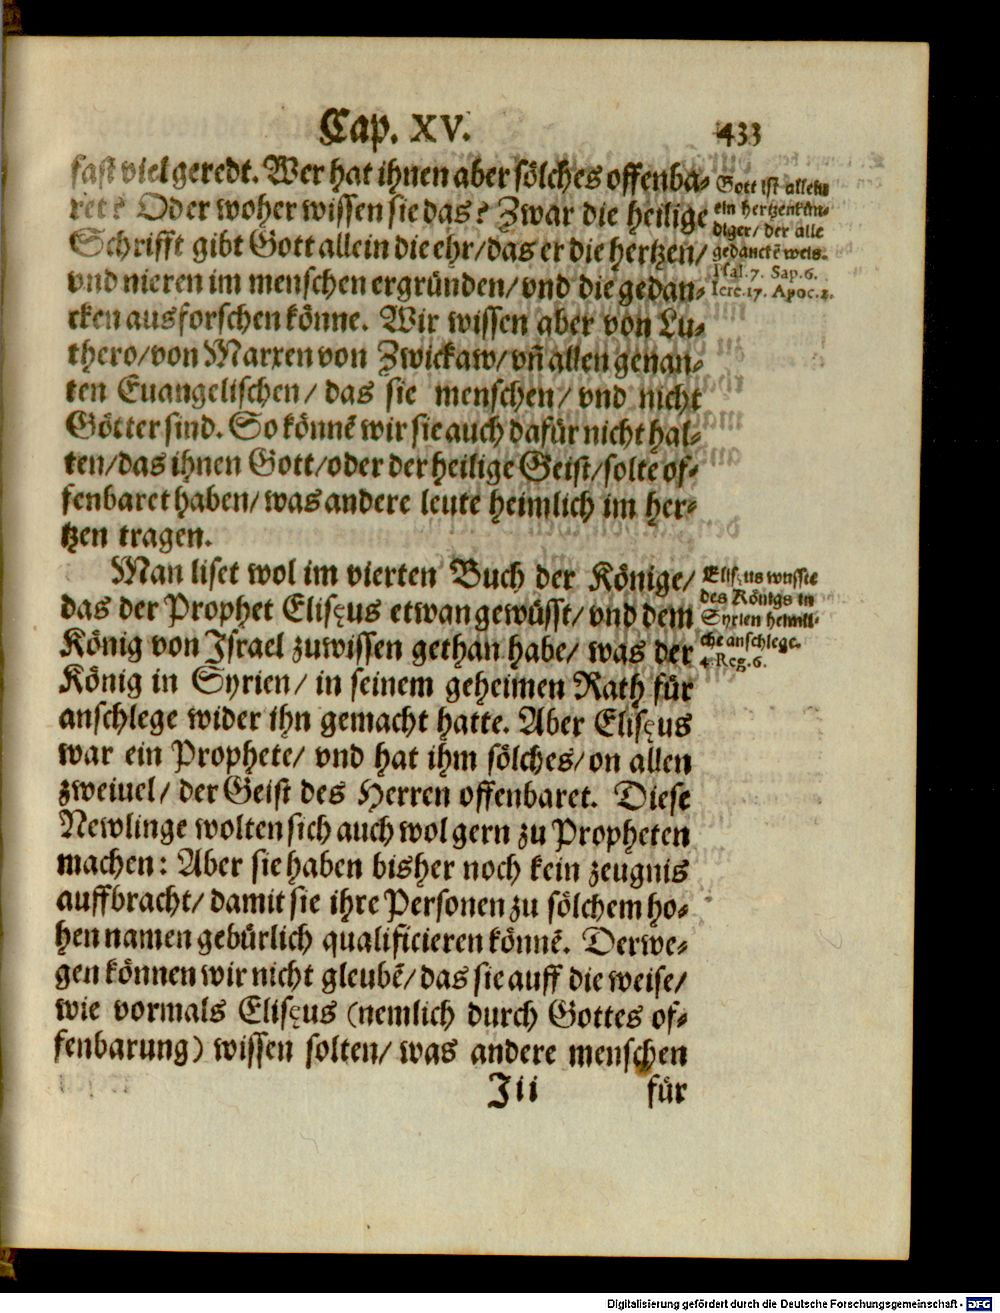 Cap. XV. 433
fast viel geredt. Wer hat ihnen aber sölches offenba-
ret? Oder woher wissen sie das? Zwar die heilige
Schrifft gibt Gott allein die ehr/das er die hertzen/
vnd nieren im menschen ergründen/vnd die gedan-
cken ausforschen könne. Wir wissen aber von Lu-
thero/von Marxen von Zwickaw/vñ allen genan-
ten Euangelischen/ das sie menschen/ vnd nicht
Götter sind. So könnẽ wir sie auch dafür nicht hal-
ten/das ihnen Gott/oder der heilige Geist/solte of-
fenbaret haben/was andere leute heimlich im her-
tzen tragen.
Gott ist allein
ein hertzenkün-
diger/ der alle
gedanckẽ weis.
Psal.7. Sap.6.
Iere.17. Apoc.2.
Man liset wol im vierten Buch der Könige/
das der Prophet Elisęus etwan gewüsst/vnd dem
König von Israel zuwissen gethan habe/ was der
König in Syrien/ in seinem geheimen Rath für
anschlege wider ihn gemacht hatte. Aber Elisęus
war ein Prophete/ vnd hat ihm sölches/on allen
zweiuel/ der Geist des Herren offenbaret. Diese
Newlinge wolten sich auch wol gern zu Propheten
machen: Aber sie haben bisher noch kein zeugnis
auffbracht/ damit sie ihre Personen zu sölchem ho-
hen namen gebürlich qualificieren könnẽ. Derwe-
gen können wir nicht gleubẽ/das sie auff die weise/
wie vormals Elisęus (nemlich durch Gottes of-
fenbarung) wissen solten/ was andere menschen
Elisęus wusste
des Königs in
Syrien heimli-
che anschlege.
4. Reg.6.
Iii für
Digitalisierung gefördert durch die Deutsche Forschungsgemeinschaft - DFG